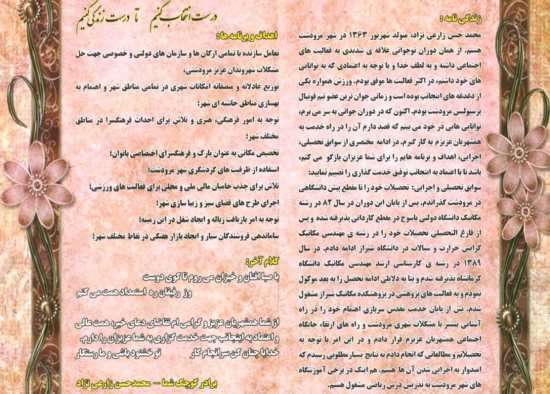 زندگی نامه :
محمد حسن زارعی نژاد، متولد شهریور ۱۳۶۳ در شهر مرودشت
هستم. از همان دوران نوجوانی علاقه ی شدیدی به فعالیت های
اجتماعی داشته و به لطف خدا و با توجه به اعتمادی که به توانایی
های خود داشتم، در اکثر فعالیت ها موفق بودم. ورزش همواره یکی
از دغدغه های اینجانب بوده است و زمانی جوان ترین عضو تیم فوتبال
پرسپولیس مرودشت بودم. اکنون که در دوران جوانی به سر می برم،
توانایی هایی در خود می بینم که قصد دارم آن را در راه خدمت به
همشهریان عزیزم به کار گیرم. در ادامه مختصری از سوابق تحصیلی،
اجرایی، اهداف و برنامه هایم را برای شما عزیزان بازگو می کنم،
باشد تا با اعتماد به اینجانب توفیق خدمت گذاری را نصیبم نمایید:
سوابق تحصیلی و اجرایی: تحصیلات خود را تا مقطع پیش دانشگاهی
در مرودشت گذراندم. پس از پایان این دوران در سال ۸۲ در رشته
مکانیک دانشگاه دولتی یاسوج در مقطع کاردانی پذیرفته شدم و پس
از فارغ التحصیلی تحصیلات خود را در رشته ی مهندسی مکانیک
گرایش حرارت و سیالات در دانشگاه شیراز ادامه دادم. در سال
۱۳۸۹ در رشته ی کارشناسی ارشد مهندسی مکانیک دانشگاه
کرمانشاه پذیرفته شدم و بنا به دلایلی ادامه تحصیل را به بعد موکول
نمودم و به فعالیت های پژوهشی در پژوهشکده مکانیک شیراز مشغول
شدم. پس از پایان خدمت مقدس سربازی اهتمام خود را در راه
آشنایی بیشتر با مشکلات شهری مرودشت و راه های ارتقاء جایگاه
اجتماعی همشهریان عزیزم قرار دادم و در این امر با توجه به
تحصیلاتم و مطالعاتی که انجام دادم به نتایج بسیار مطلوبی رسیدم که
امیدوار به اجرایی شدن آن ها هستم. هم اینک در برخی آموزشگاه
های شهر مرودشت به تدریس درس ریاضی مشغول هستم.
درست انتخاب کنیم تا درست زندگی کنیم
اهداف و برنامه ها:
تعامل سازنده با تمامی ارگان ها و سازمان های دولتی و خصوصی جهت حل
مشکلات شهروندان عزیز مرودشتی؛
توزیع عادلانه و منصفانه امکانات شهری در تمامی مناطق شهر و اهتمام به
بهسازی مناطق حاشیه ای شهر؛
توجه به امور فرهنگی، هنری و تلاش برای احداث فرهنگسرا در مناطق
مختلف شهر؛
تخصیص مکانی به عنوان پارک و فرهنگسرای اختصاصی بانوان؛
استفاده از ظرفیت های گردشگری شهر مرودشت؛
تلاش برای جذب حامیان مالی ملی و محلی برای فعالیت های ورزشی؛
اجرای طرح های فضای سبز و زیبا سازی شهر؛
توجه به امر بازیافت زباله و ایجاد شغل در این زمینه؛
ساماندهی فروشندگان سیار و ایجاد بازار هفتگی در نقاط مختلف شهر؛
کلام آخر:
با صبا افتان و خیزان می روم تا کوی دوست
وز رفیقان ره استمداد همت می کنم
از شما همشهریان عزیز و گرامی ام تقاضای دعای خیر، همت عالی
و اعتماد به اینجانب جهت خدمت گزاری به شما عزیزان را دارم.
خدایا چنان کن سرانجام کار تو خشنود باشی و ما رستگار
برادر کوچک شما – محمدحسن زارعی نژاد